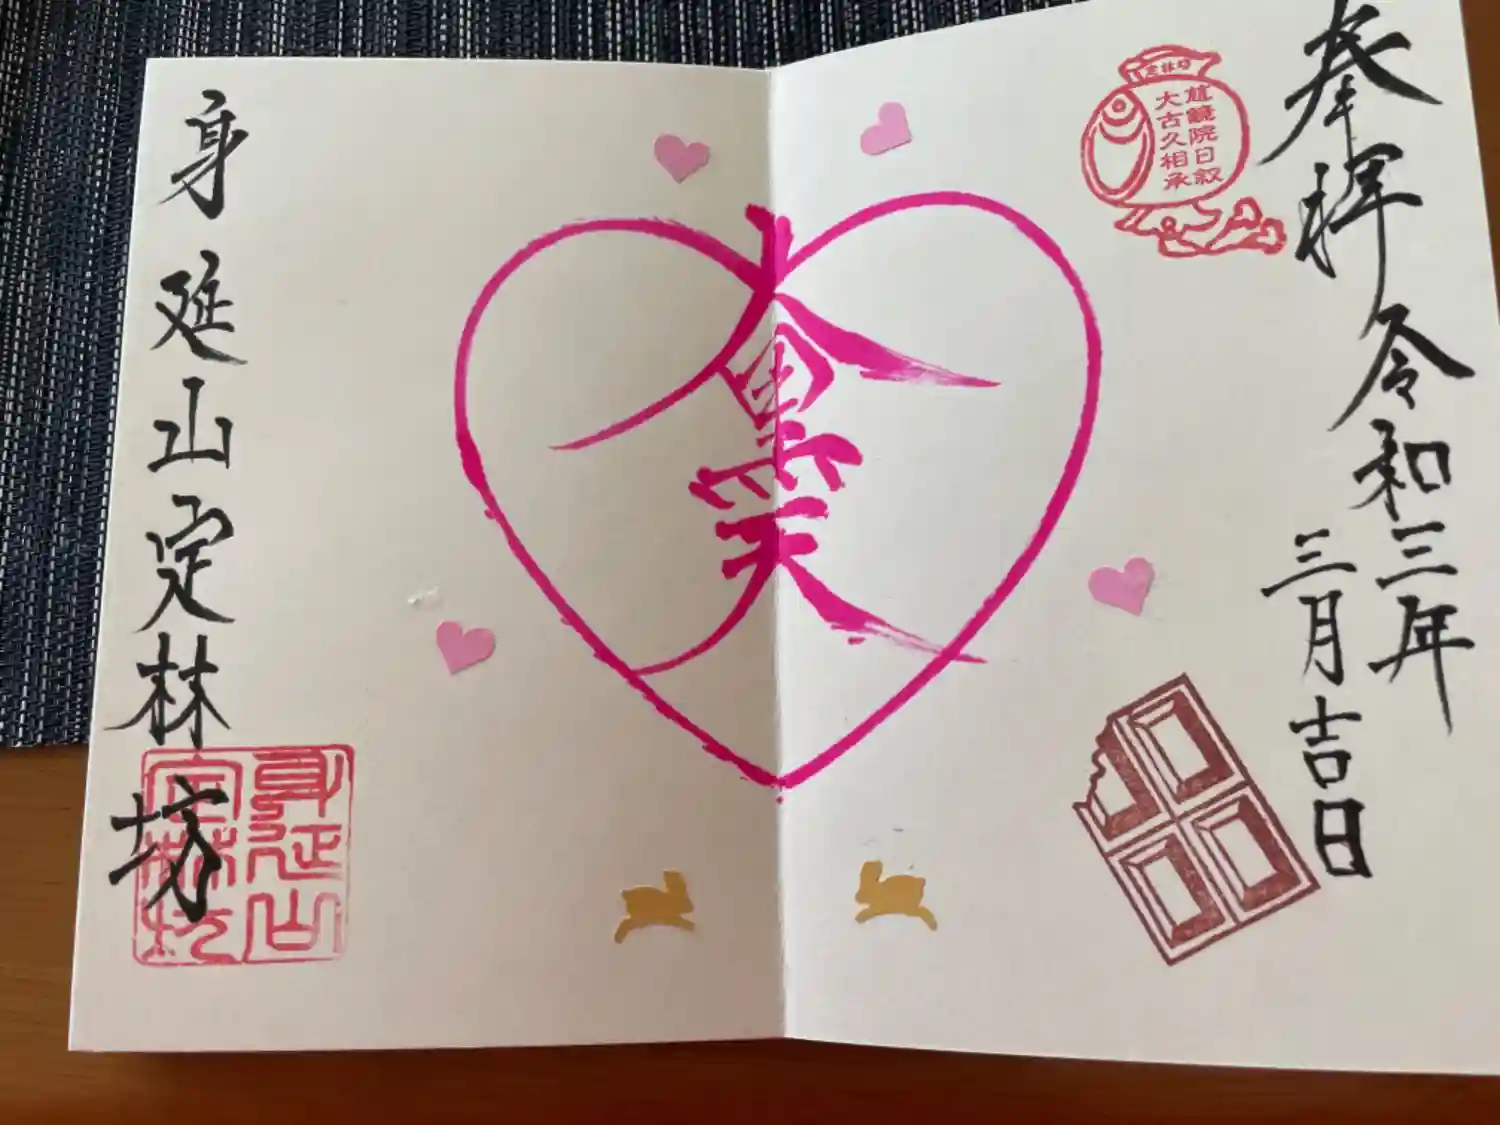 奉拝 令和三年
三月吉日
定林坊
鏡院日叙
大古久相承
大黒天
身延山定林坊
身延山
定林坊